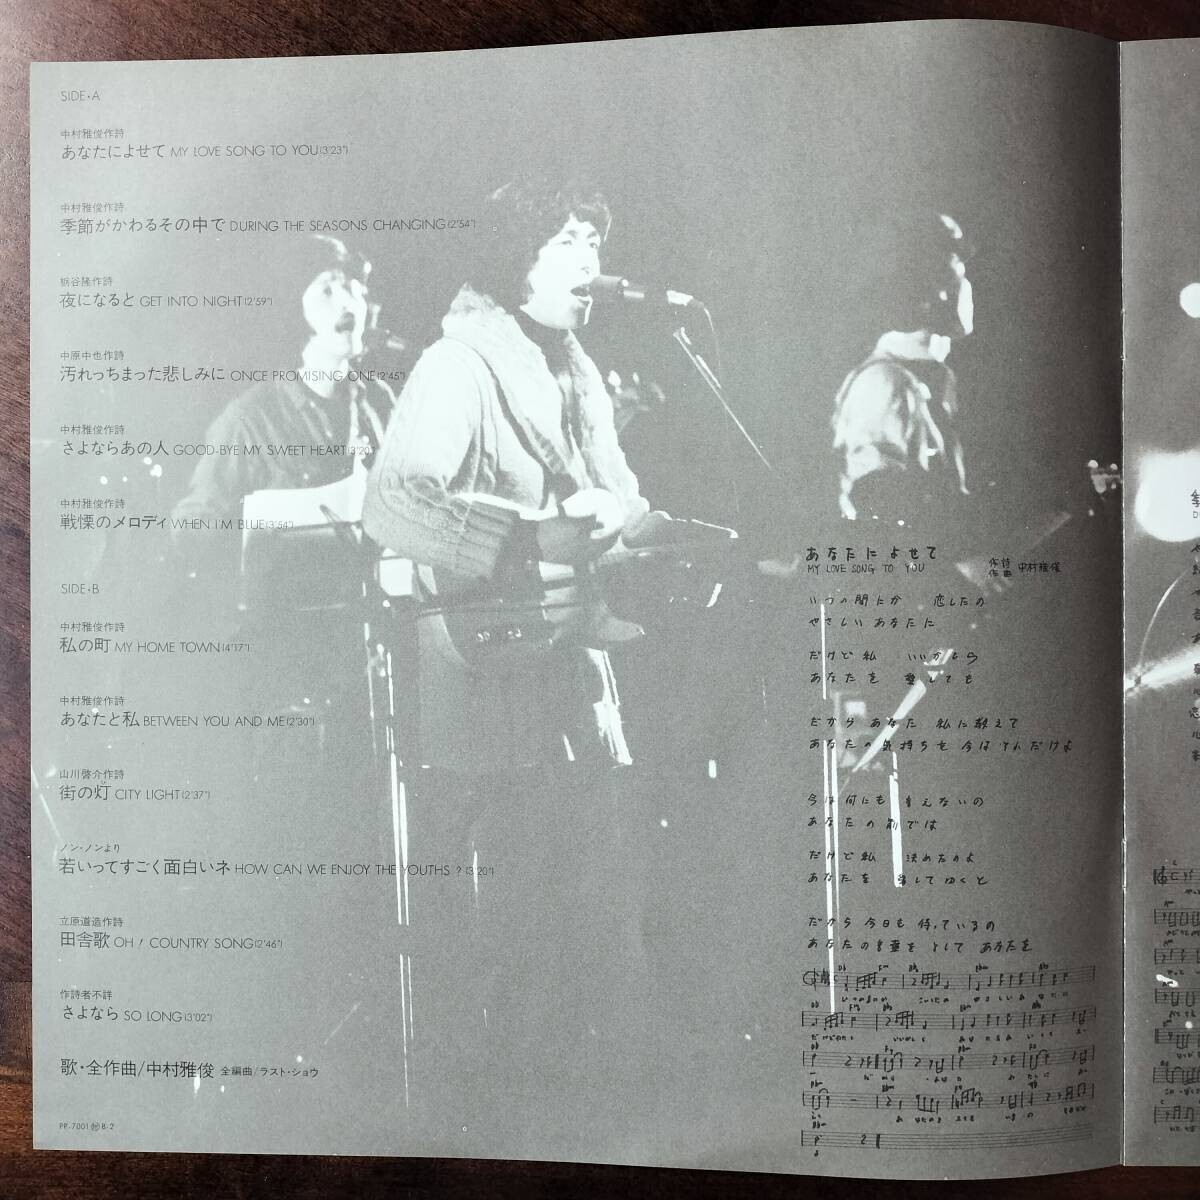 SIDE・A
中村雅俊作詩
あなたによせて MY LOVE SONG TO YOU(3'23")
中村雅俊作詩
季節がかわるその中で DURING THE SEASONS CHANGING(2'54")
栃谷隆作詩
夜になると GET INTO NIGHT(2'59")
中原中也作詩
汚れっちまった悲しみに ONCE PROMISING ONE(2'45")
中村雅俊作詩
さよならあの人 GOOD-BYE MY SWEET HEART(3'20")
中村雅俊作詩
戦慄のメロディ WHEN I'M BLUE(3'54")
SIDE・B
中村雅俊作詩
私の町 MY HOME TOWN(4'17")
中村雅俊作詩
あなたと私 BETWEEN YOU AND ME(2'30")
山川啓介作詩
街の灯 CITY LIGHT(2'37")
ノン・ノンより
若いってすごく面白いネ HOW CAN WE ENJOY THE YOUTHS ? (3'20")
立原道造作詩
田舎歌 OH! COUNTRY SONG(2'46")
作詩者不詳
さよなら SO LONG(3'02")
歌・全作曲/中村雅俊 全編曲/ラスト・ショウ
PP-7001 Ⓗ B-2
あなたによせて
MY LOVE SONG TO YOU
作詩
作曲 中村雅俊
いつの間にか 恋したの
やさしい あなたに
だけど私 いいかしら
あなたを 愛しても
だから あなた 私に教えて
あなたの気持ちを 今は それだけよ
今は何にも 言えないの
あなたの前では
だけど私 決めたのよ
あなたを 愛してゆくと
だから 今日も 待っているの
あなたの言葉を そして あなたを